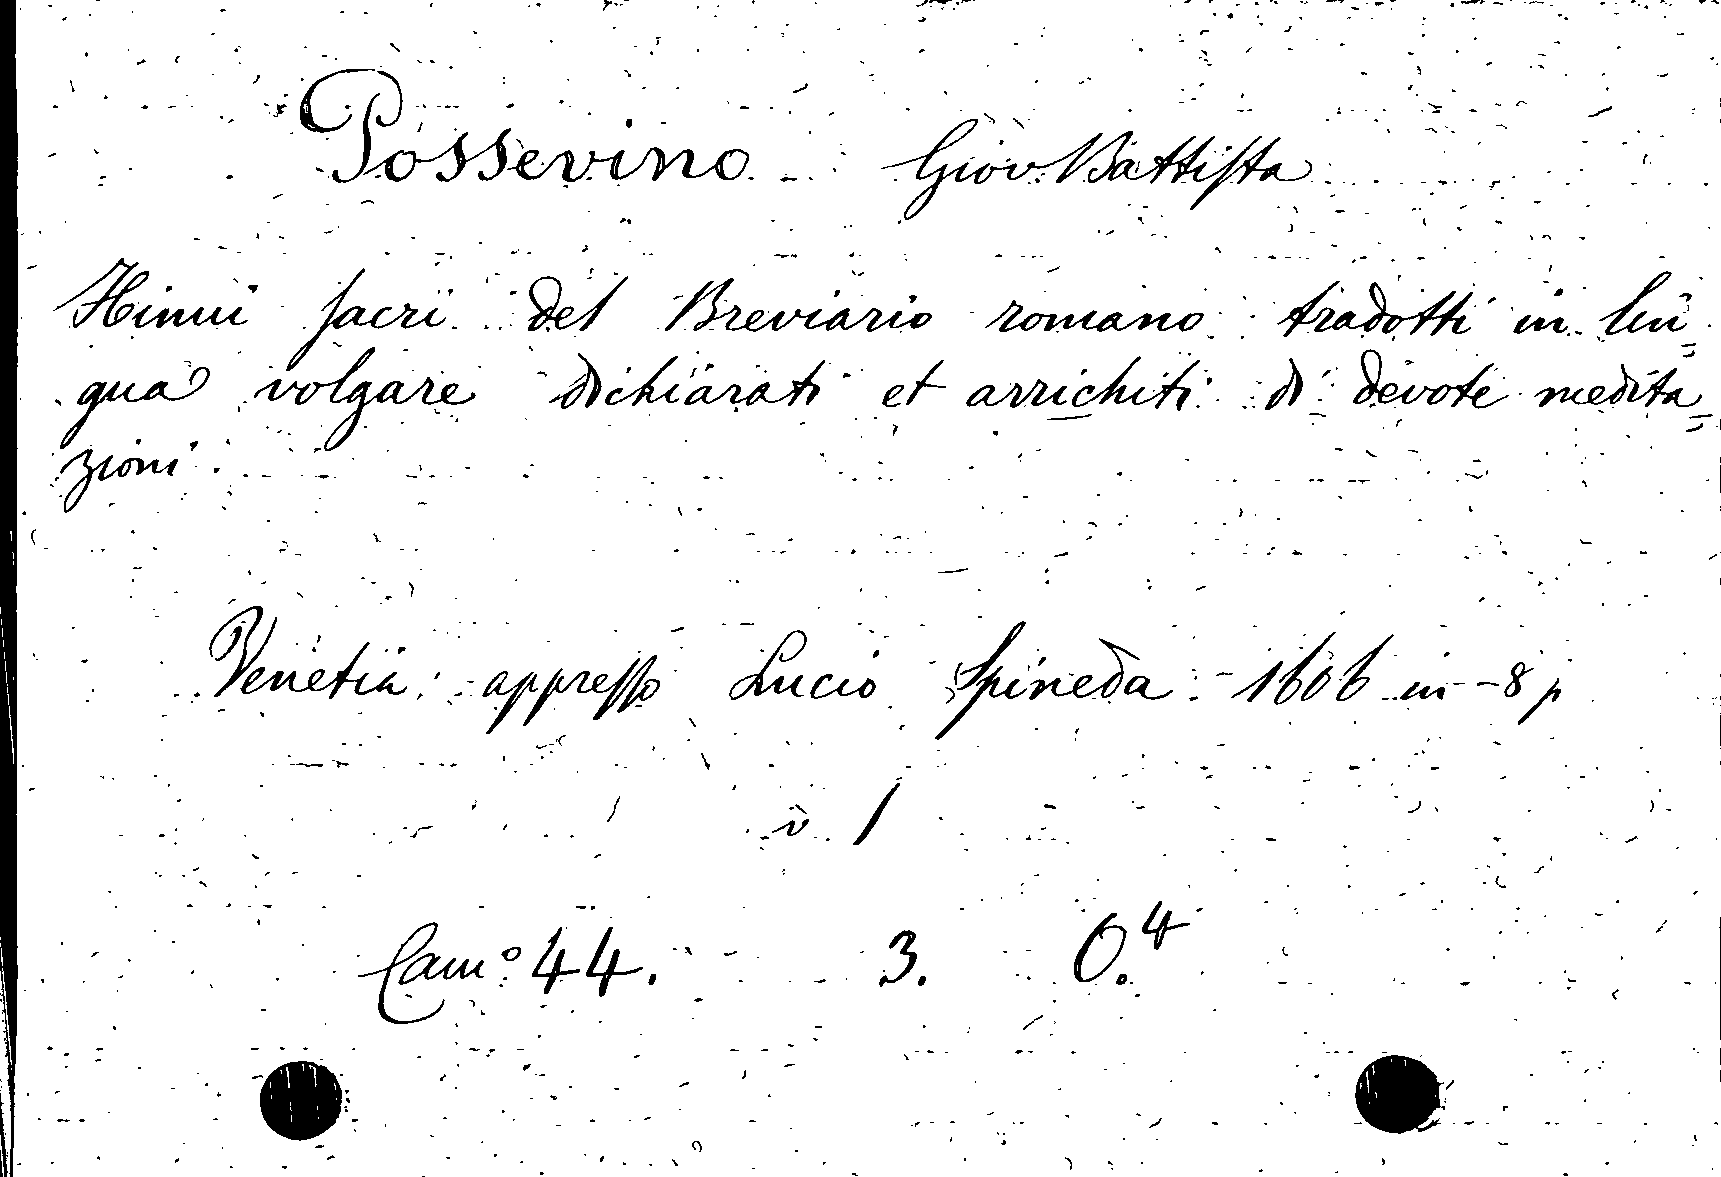 Possevino Giov. Battista
Himni sacri del Breviario romano tradotti in lin=
gua volgare dichiarati et arrichiti di devote medita=
zioni.
Venetia appresso Lucio Spineda 1606 in-8 p
v. 1
Cam.º 44. 3. O.4